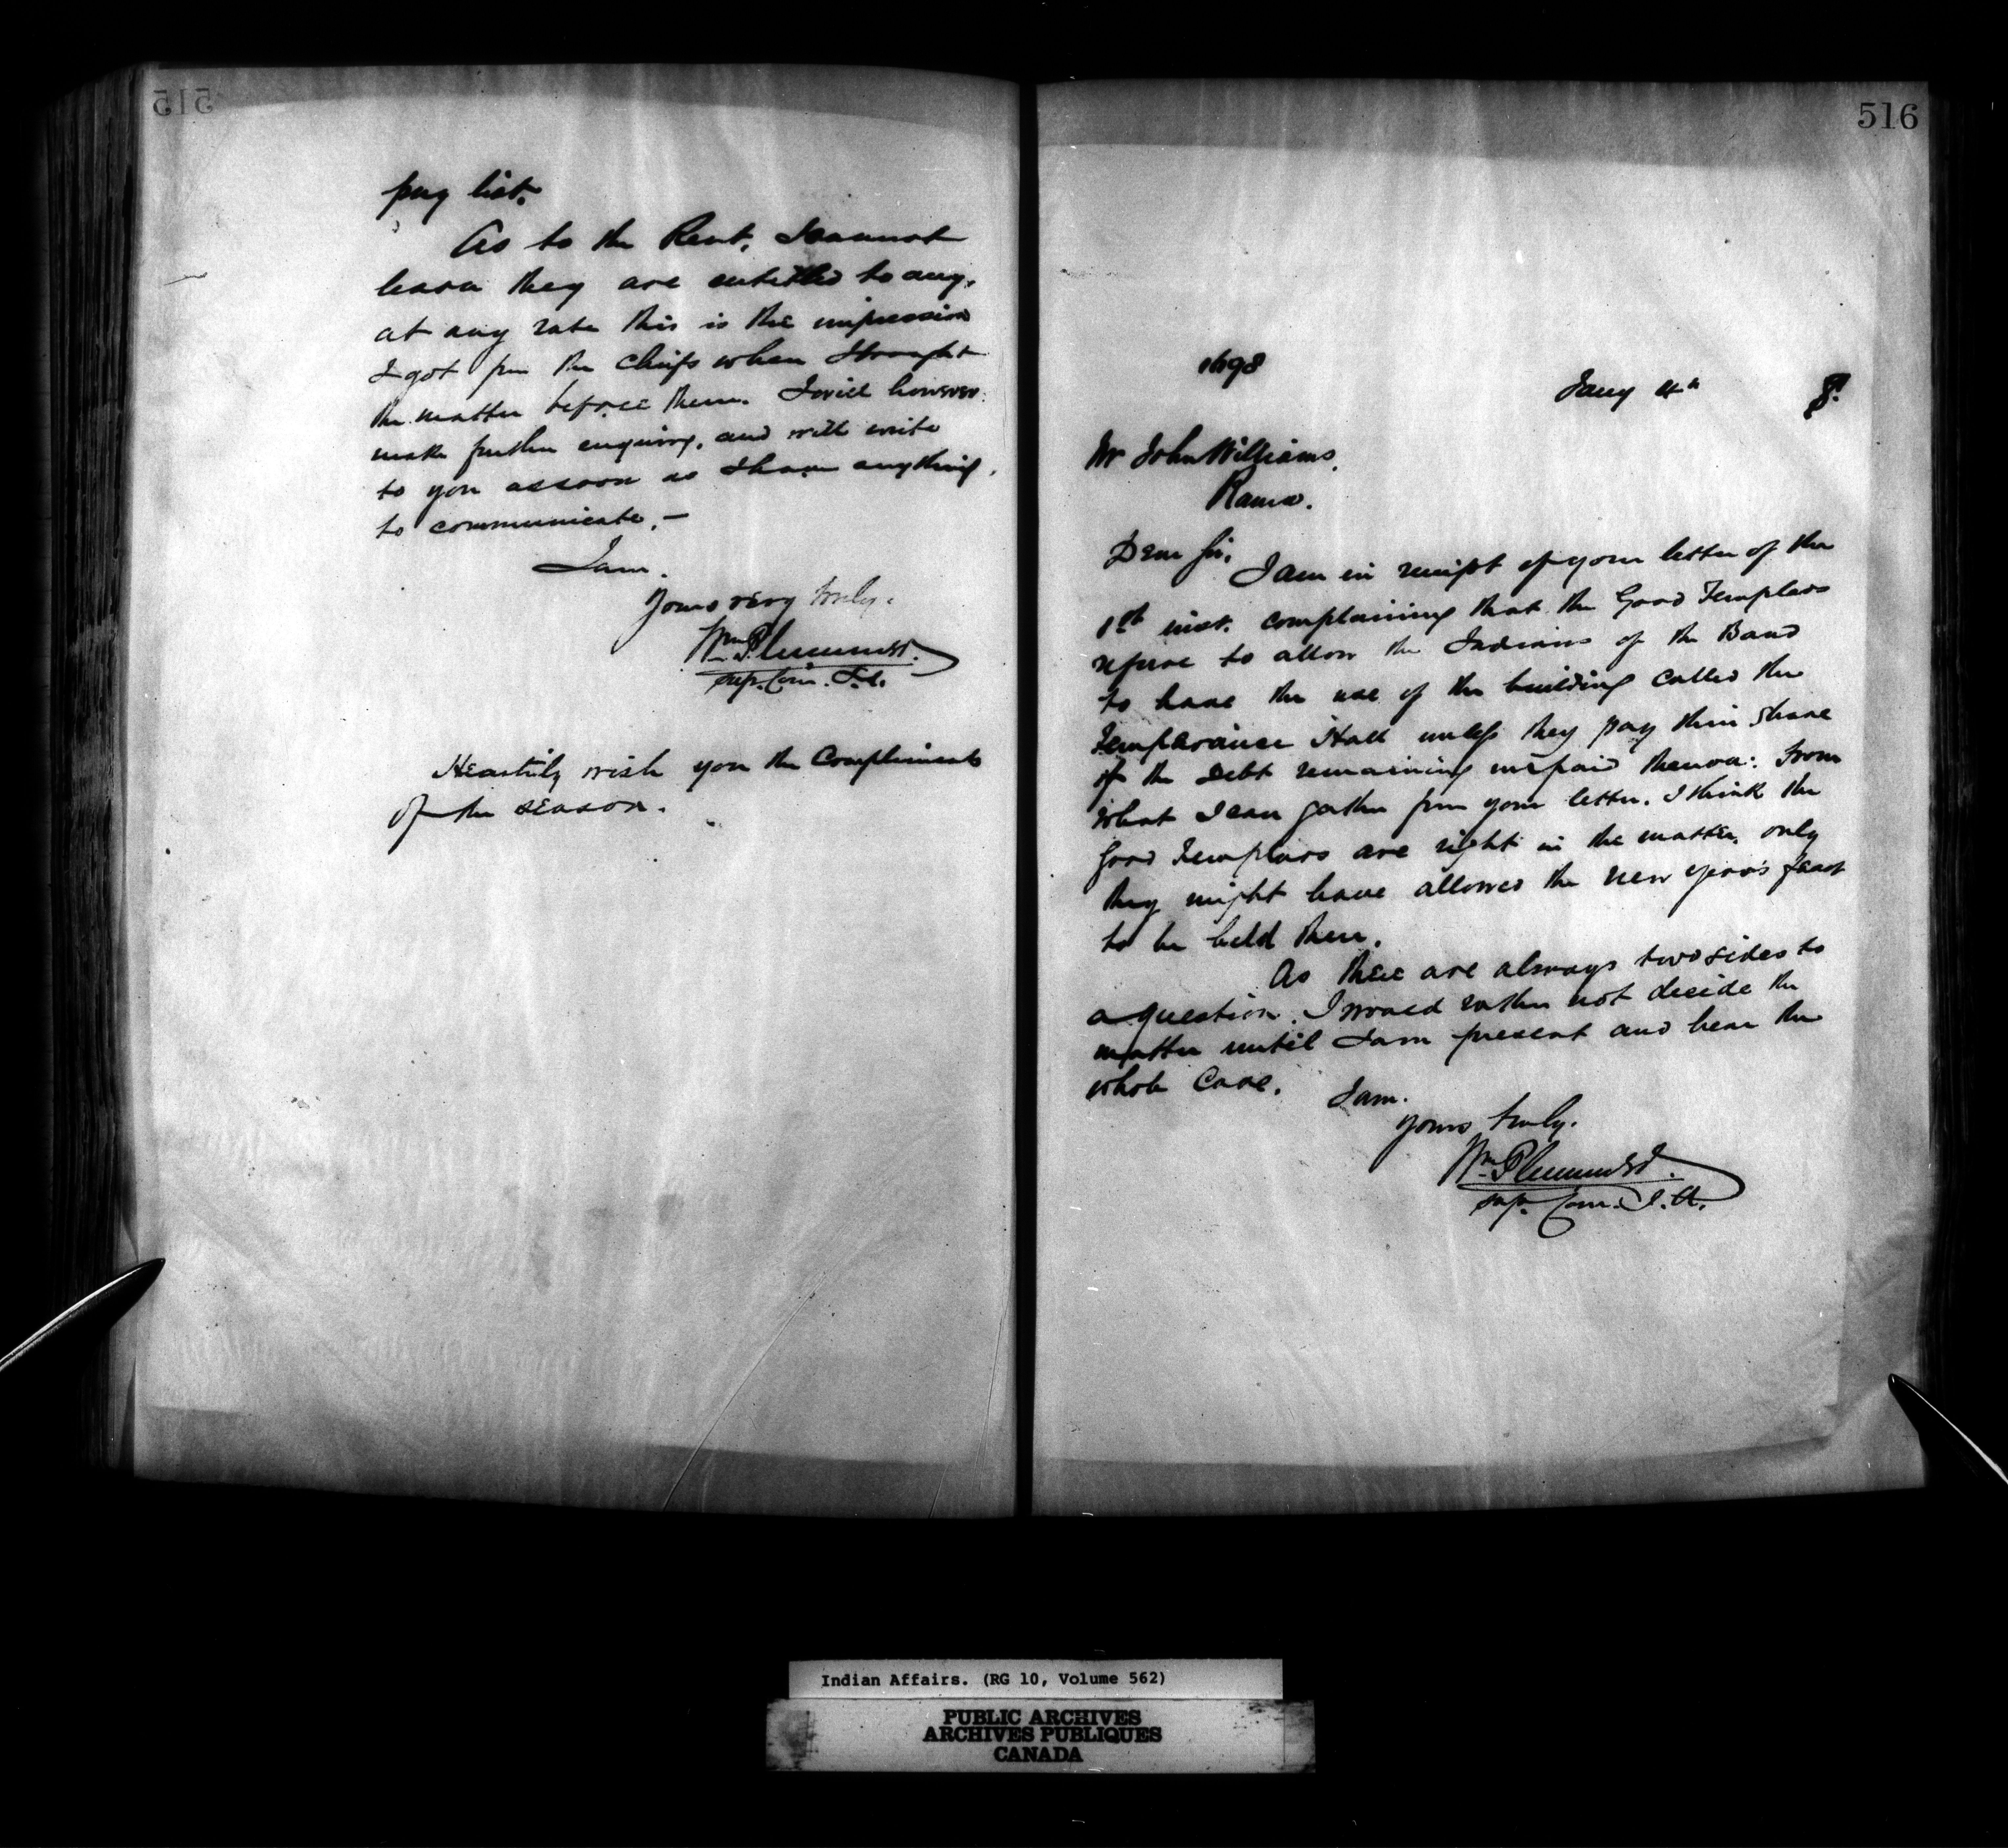 515
pay list.
As to the Rent, I cannot
learn they are entitled to any,
at any rate this is the impression
I got from the Chiefs when I brought
the matter before them. I will however
make further enquiry, and will write
to you as soon as I have anything
to communicate. —
I am.
Yours very truly.
Wm Plummer.
Sup. Com. I.A.
Heartily wish you the Compliments
of the season.
516
1698
Jany 4th 8.
Mr John Williams,
Rama.
Dear Sir,
I am in receipt of your letter of the
1st inst. complaining that the Good Templars
refuse to allow the Indians of the Band
to have the use of the building called the
Temperance Hall unless they pay their share
of the debt remaining unpaid thereon: From
what I can gather from your letter. I think the
Good Templars are right in the matter, only
they might have allowed the new year's feast
to be held there.
As there are always two sides to
a question. I would rather not decide the
matter until I am present and hear the
whole Case.
I am.
Yours truly.
Wm Plummer.
Sup. Com. I.A.
Indian Affairs. (RG 10, Volume 562)
PUBLIC ARCHIVES
ARCHIVES PUBLIQUES
CANADA